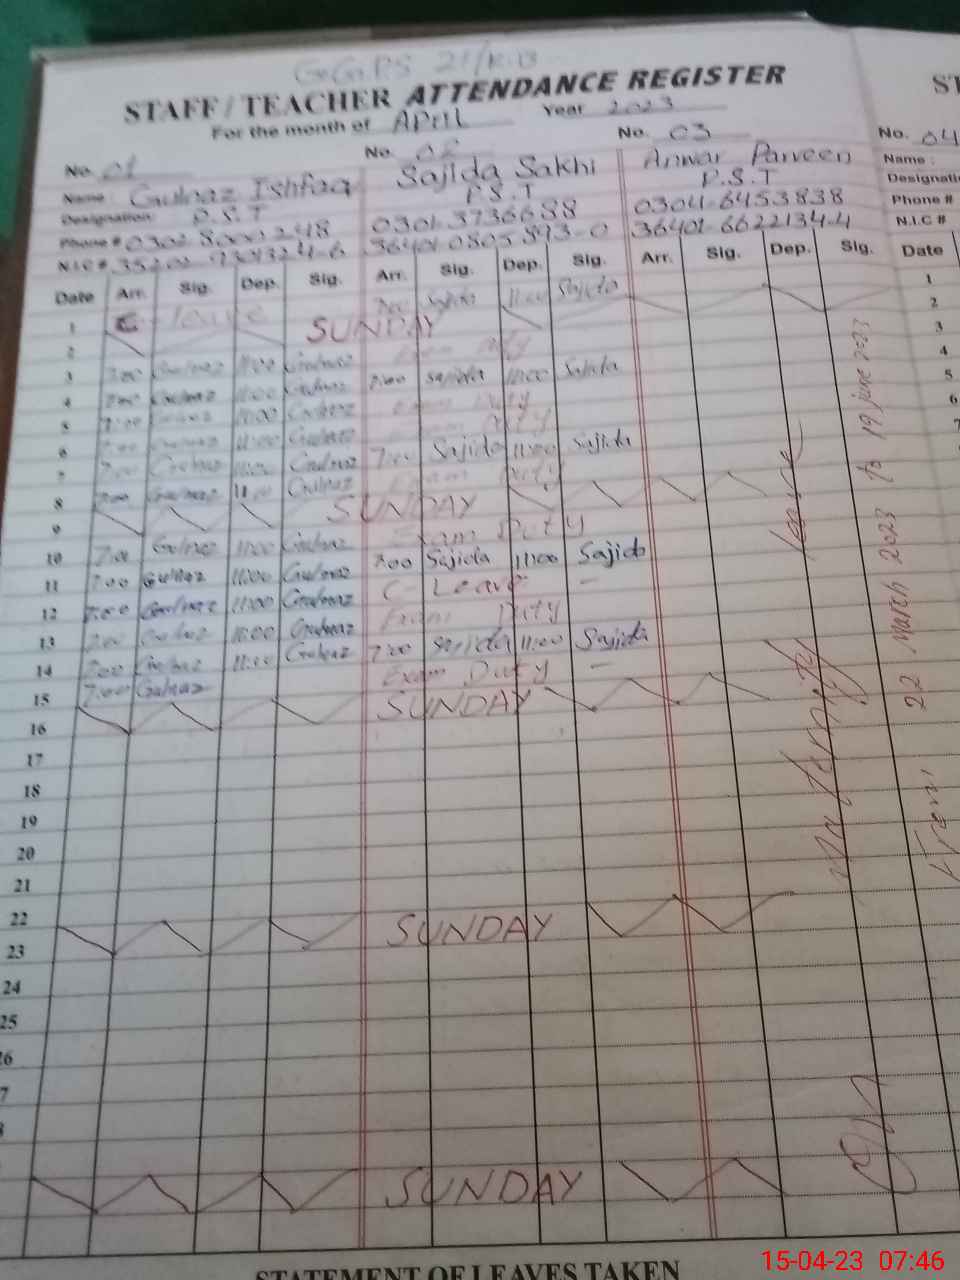 G.G.P.S 21/K.B
STAFF / TEACHER ATTENDANCE REGISTER
For the month of April Year 2023
No. 01 No. 02 No. 03 No. 04
Name : Gulnaz Ishfaq Sajida Sakhi Anwar Parveen Name :
Designation: P.S.T P.S.T P.S.T
Phone # 0301-3736688 0304-6453838 Phone #
N.I.C # 36401-0805893-0 36401-6622134-4 N.I.C #
Date Arr. Sig. Dep. Sig. Arr. Sig. Dep. Sig. Arr. Sig. Dep. Sig. Date
1 C- leave 7:00 Sajida 11:00 Sajida 1
2 SUNDAY 2
3 7:00 Gulnaz 11:00 Gulnaz Exam Duty 3
4 7:00 Gulnaz 11:00 Gulnaz 7:00 Sajida 11:00 Sajida 4
5 7:00 Gulnaz 11:00 Gulnaz Exam Duty 5
6 7:00 Gulnaz 11:00 Gulnaz Exam Duty 6
7 7:00 Gulnaz 11:00 Gulnaz 7:00 Sajida 11:00 Sajida 7
8 7:00 Gulnaz 11:00 Gulnaz Exam Duty
9 SUNDAY
10 7:00 Gulnaz 11:00 Gulnaz Exam Duty
11 7:00 Gulnaz 11:00 Gulnaz 7:00 Sajida 11:00 Sajida
12 7:00 Gulnaz 11:00 Gulnaz C- Leave -
13 7:00 Gulnaz 11:00 Gulnaz Exam Duty
14 7:00 Gulnaz 11:00 Gulnaz 7:00 Sajida 11:00 Sajida
15 7:00 Gulnaz Exam Duty -
16 SUNDAY
17
18
19
20
21
22
23 SUNDAY
24
25
SUNDAY
Maternity leave
From 22 March 2023 to 19 June 2023
STATEMENT OF LEAVES TAKEN
15-04-23 07:46